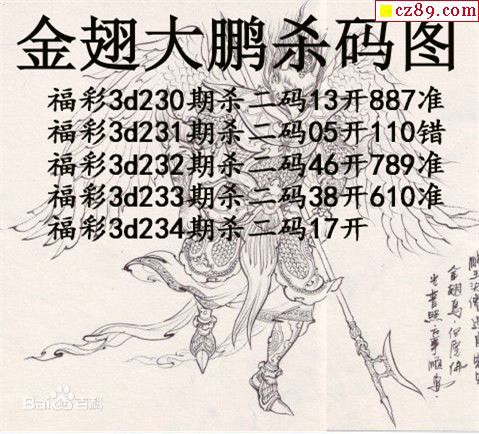 cz89.com
金翅大鹏杀码图
福彩3d230期杀二码13开887准
福彩3d231期杀二码05开110错
福彩3d232期杀二码46开789准
福彩3d233期杀二码38开610准
福彩3d234期杀二码17开
Baidu百科